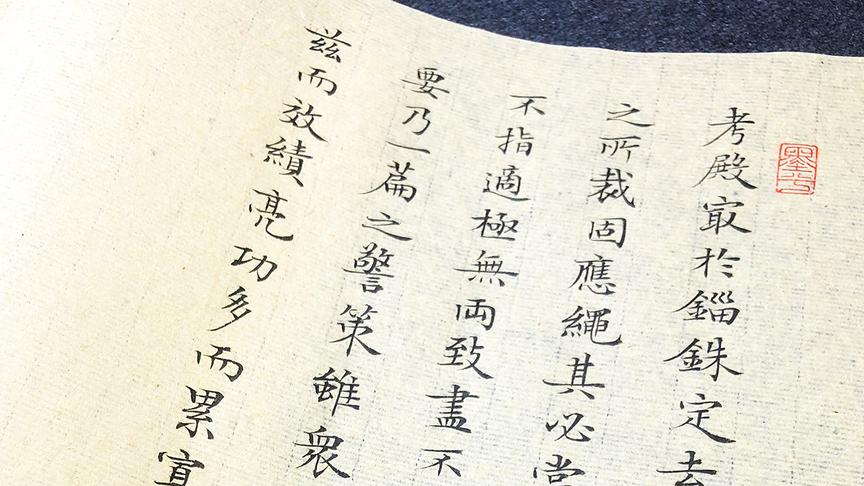 考殿㝡於錙銖定去
之所裁固應繩其必當
不指適極無両致盡不
要乃一篇之警策雖衆
兹而效績亮功多而累寡